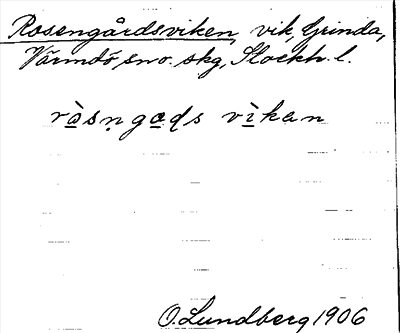 Rosengårdsviken, vik, Grinda,
Värmdö sno. skg, Stockh. l.
ràsn̥gạɖs vìkan
O. Lundberg 1906